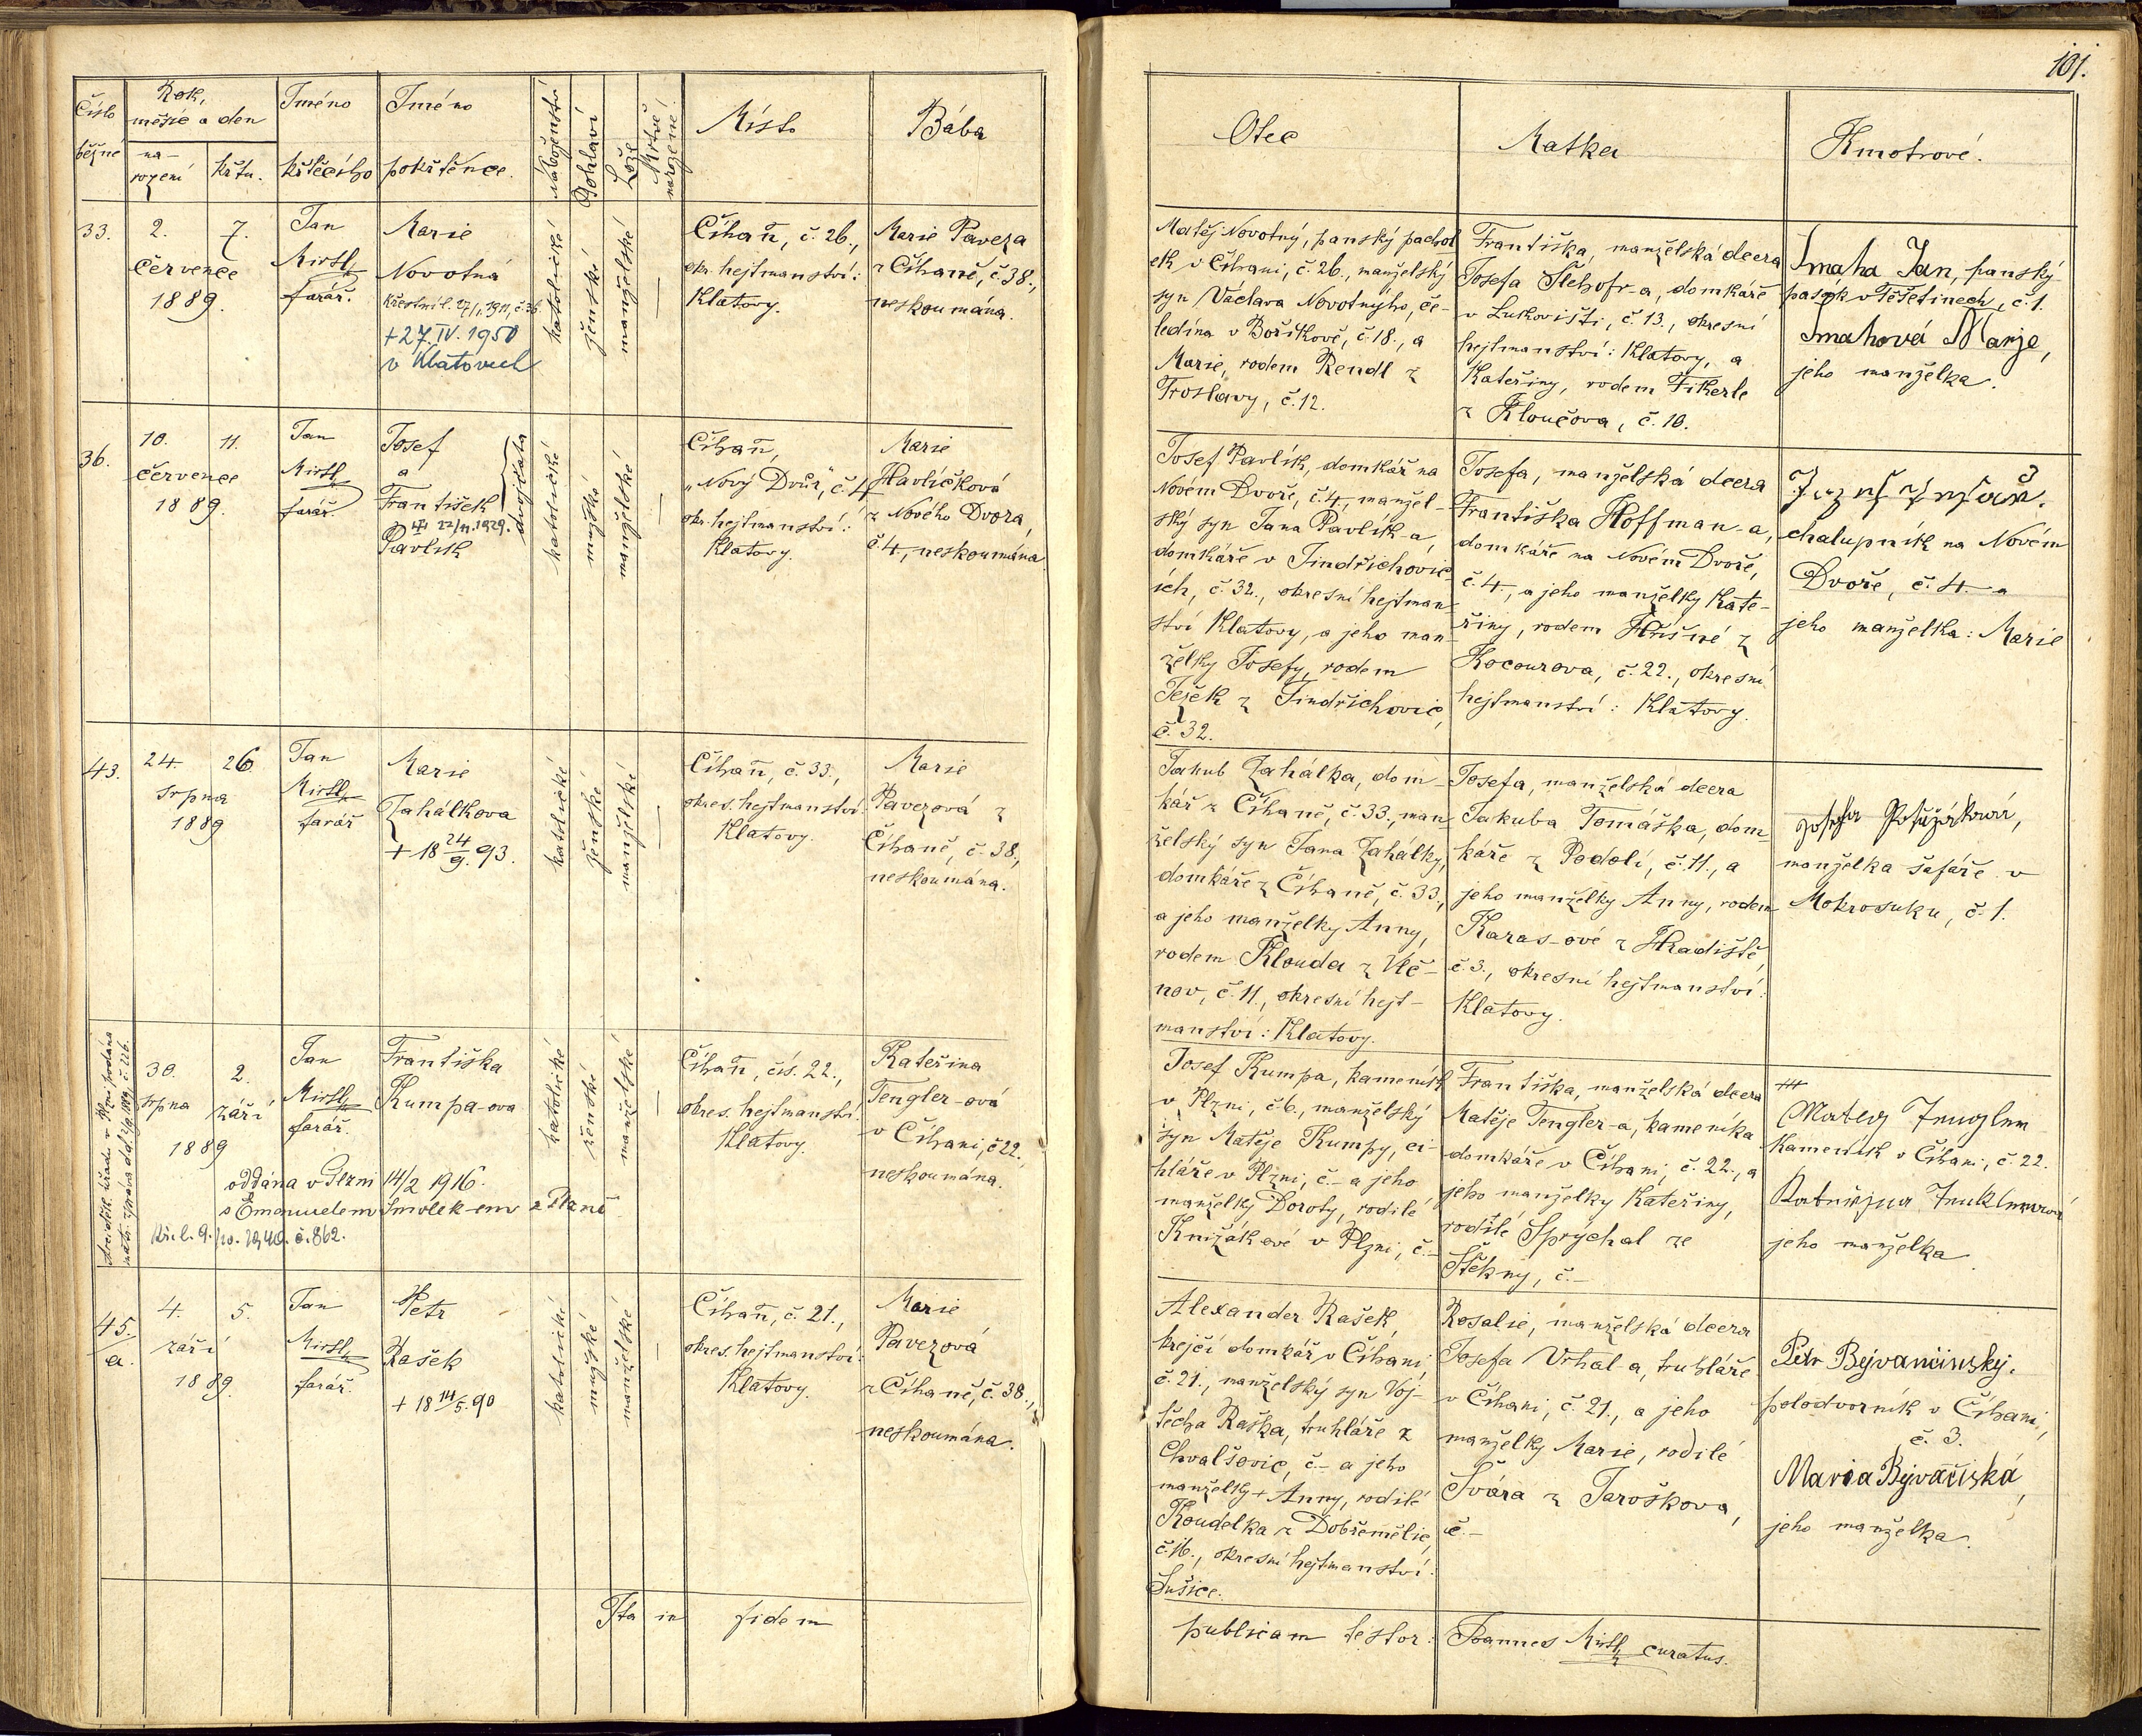 101.
Číslo běžné
Rok, měsíc a den
narození
křtu.
Jméno křtícího
Jméno pokřtěnce.
Náboženství
Pohlaví
Lože
Mrtvě narozené.
Místo
Bába
Otec
Matka
Kmotrové.
33.
2.
7.
července
1889.
Jan
Mirtl
farář.
Marie
Novotná
Křestní l. 27/1. 1911, č. 36
+ 27. IV. 1950
v Klatovech
katolické
ženské
manželské
—
Číhaň, č. 26.,
okr. hejtmanství:
Klatovy.
Marie Paveza
z Číhaně, č. 38.,
neskoumána.
Matěj Novotný, panský pachol
ek v Číhani, č. 26., manželský
syn Václava Novotnýho, če-
ledína v Boříkově, č. 18., a
Marie, rodem Rendl z
Froslavy, č. 12.
Františka, manželská dcera
Josefa Šlehofr-a, domkáře
v Lukovišti, č. 13., okresní
hejtmanství: Klatovy, a
Kateřiny, rodem Fikerle
z Kloučova, č. 10.
Smaha Jan, panský
pasák v Těšetinech, č. 1.
Smahová Marje,
jeho manželka.
36.
10.
11.
července
1889.
Jan
Mirtl
farář
Josef
a
František
22/11. 1929.
Pavlík
dvojčata
katolické
mužské
manželské
—
Číhaň,
„Nový Dvůr“, č. 4
okr. hejtmanství:
Klatovy.
Marie
Havlíčková
z Nového Dvora,
č. 4., neskoumána
Josef Pavlík, domkář na
Novém Dvoře, č. 4., manžel-
ský syn Jana Pavlík-a,
domkáře v Jindřichovic-
ích, č. 32., okresní hejtman-
ství Klatovy, a jeho man-
želky Josefy, rodem
Ješek z Jindřichovic,
č. 32.
Josefa, manželská dcera
Františka Hoffman-a,
domkáře na Novém Dvoře,
č. 4., a jeho manželky Kate-
řiny, rodem Hůšné z
Kocourova, č. 22., okresní
hejtmanství: Klatovy.
chalupník na Novém
Dvoře, č. 4. a
jeho manželka: Marie
43.
24.
26.
srpna
1889
Jan
Mirtl
farář
Marie
Zahálkova
+ 18 24/9. 93.
katolické
ženské
manželské
—
Číhaň, č. 33.,
okres. hejtmanství:
Klatovy.
Marie
Pavezová z
Číhaně, č. 38.,
neskoumána.
Jakub Zahálka, dom-
kář z Číhaně, č. 33., man-
želský syn Jana Zahálky,
domkáře z Číhaně, č. 33.,
a jeho manželky Anny,
rodem Klouda z Vlč-
nov, č. 11., okresní hejt-
manství: Klatovy.
Josefa, manželská dcera
Jakuba Tomáška, dom-
káře z Podolí, č. 11., a
jeho manželky Anny, rodem
Karas-ové z Hradiště,
č. 3., okresní hejtmanství:
Klatovy.
manželka šafáře v
Mokrosuku, č. 1.
30.
2.
srpna
září
1889
Jan
Mirtl
farář.
Františka
Kumpa-ova
oddána v Plzni 14/2 1916.
s Emanuelem Smolek-em z Plzně
Kř. l. 9./10. 1940. č. 862.
katolické
ženské
manželské
—
Číhaň, čís. 22.,
okres. hejtmanství:
Klatovy.
Kateřina
Tengler-ová
v Číhani, č. 22.,
neskoumána.
Josef Kumpa, kameník
v Plzni, č. 6., manželský
syn Matěje Kumpy, ci-
hláře v Plzni, č. – a jeho
manželky Doroty, rodilé
Knižákové v Plzni, č. –
Františka, manželská dcera
Matěje Tengler-a, kameníka
domkáře v Číhani, č. 22., a
jeho manželky Kateřiny,
rodilé Sprýchal ze
Štěkny, č. –
+++
kameník v Číhani, č. 22.
jeho manželka.
45.
a.
4.
5.
září
1889.
Jan
Mirtl
farář.
Petr
Rašek
+ 18 14/5. 90
katolické
mužské
manželské
—
Číhaň, č. 21.,
okres. hejtmanství:
Klatovy.
Marie
Pavezová
z Číhaně, č. 38.,
neskoumána.
Alexander Rašek,
krejčí domkář v Číhani,
č. 21., manželský syn Voj-
těcha Raška, truhláře z
Chvalšovic, č. – a jeho
manželky + Anny, rodilé
Koudelka z Dobřemělic,
č. 16., okresní hejtmanství:
Sušice.
Rosalie, manželská dcera
Josefa Vrhal-a, truhláře
v Číhani, č. 21., a jeho
manželky Marie, rodilé
Švára z Jaroškova,
č. –
Petr Bejvančinský.
polodvorník v Číhani,
č. 3.
Maria Bejvačiská,
jeho manželka.
Ita in fidem publicam testor: Joannes Mirtl curatus.